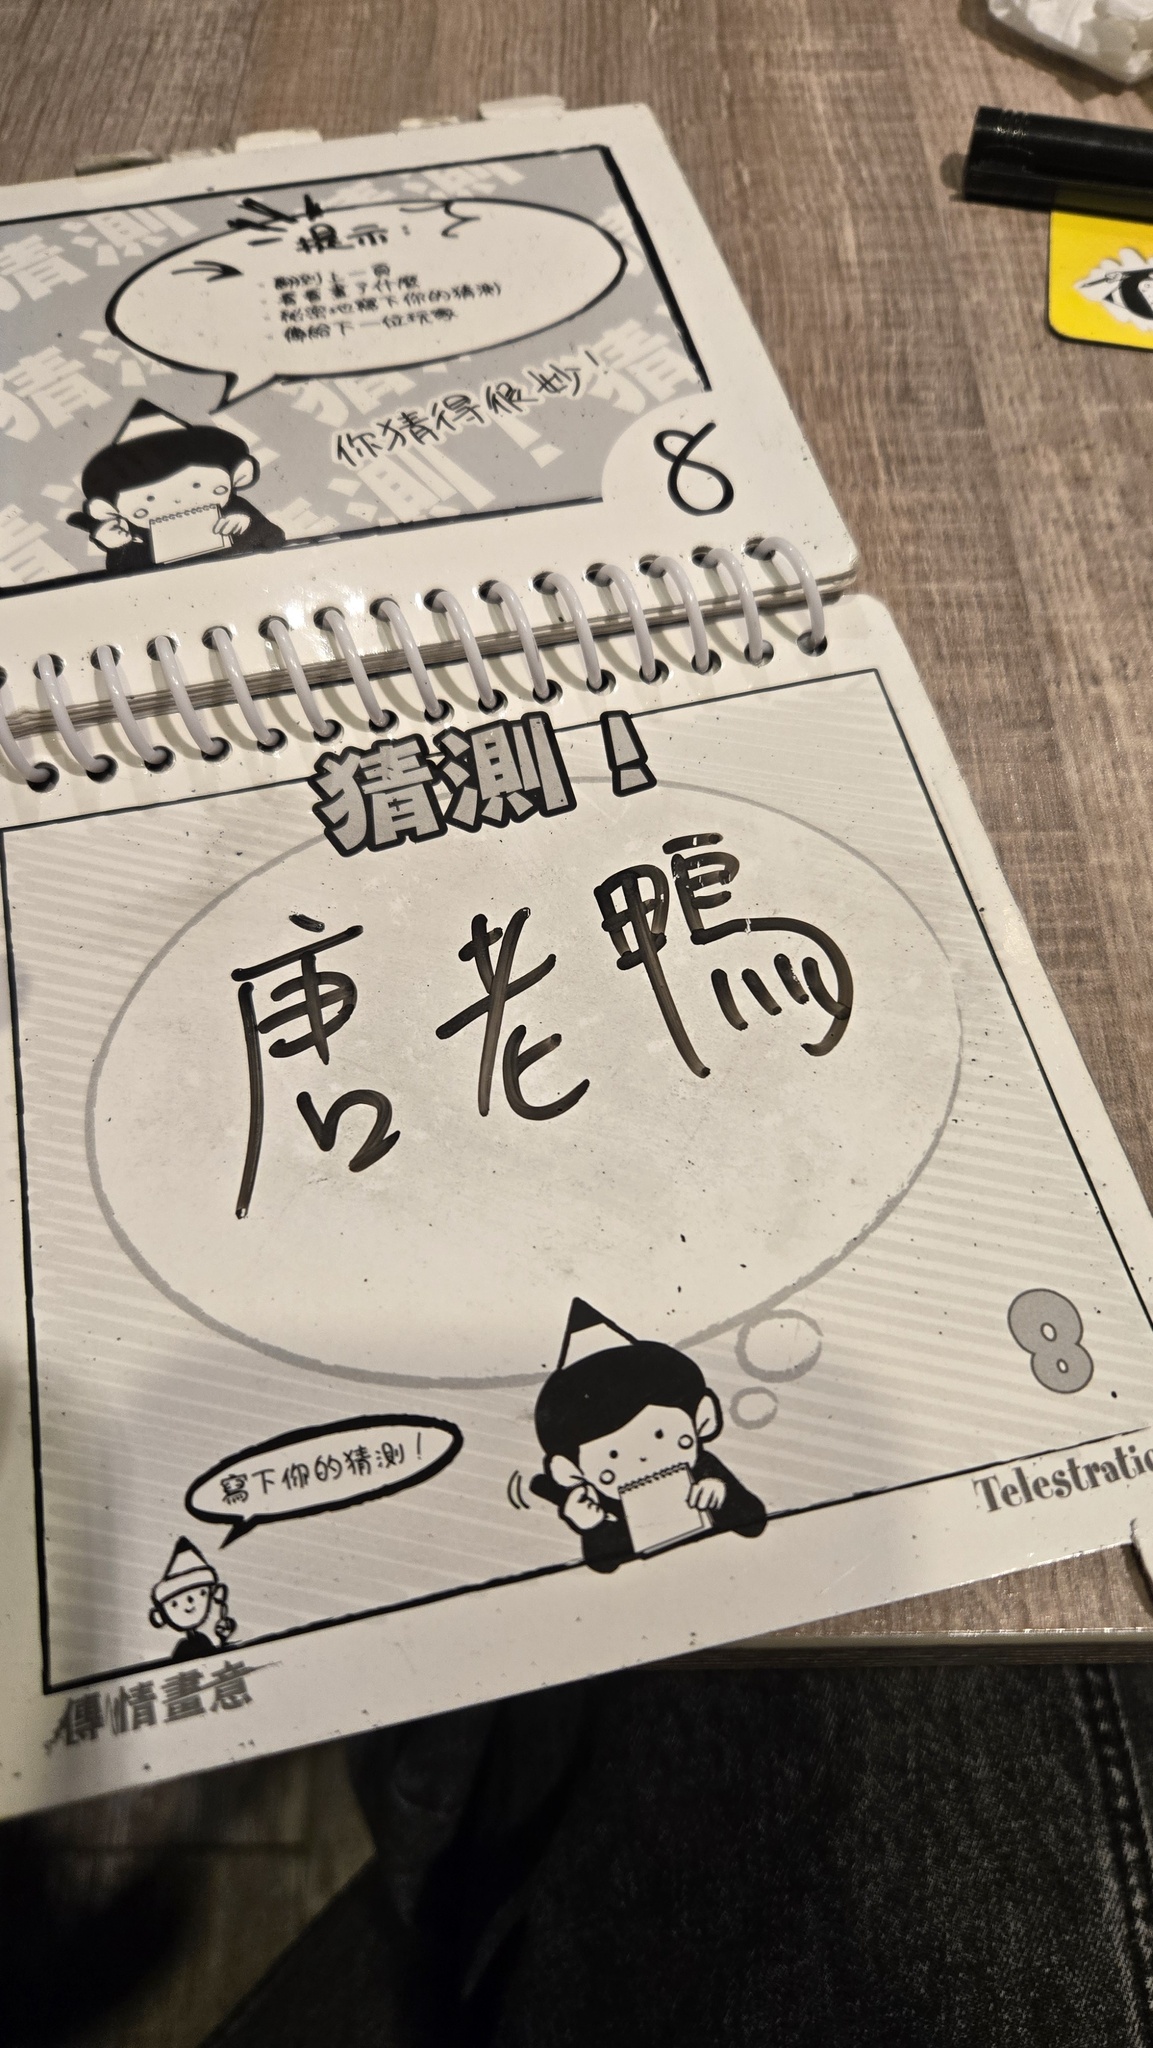 提示：
翻到上一頁
看看畫了什麼
秘密地寫下你的猜測
傳給下一位玩家
你猜得很妙！
8
猜測！
唐老鴨
8
寫下你的猜測！
Telestratio
傳情畫意